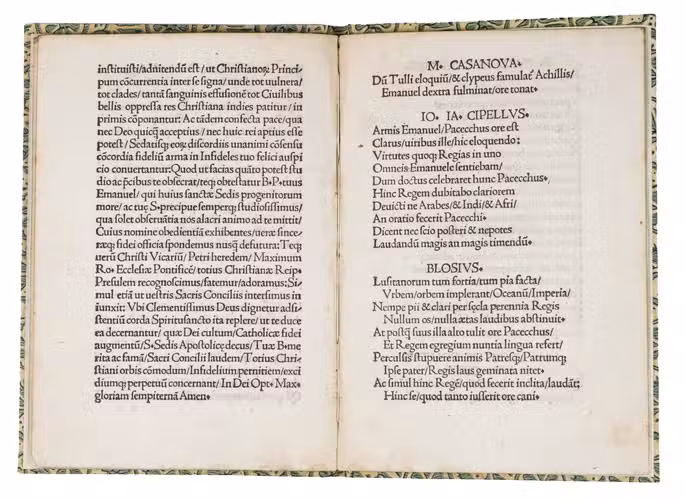 instituisti/adnitendũ est/ut Christianoꝝ Princi-
pum cõcurrentia inter se signa/unde tot uulnera/
tot clades/tantã sanguinis effusionẽ tot Ciuilibus
bellis oppressa res Christiana indies patitur/in
primis cõponantur: Ac tãdem confecta pace/qua
nec Deo quicꝗ acceptius/nec huic rei aptius esse
potest/Sedatisqꝫ eoꝝ discordiis unanimi cõsensu
cõcordia fidelium arma in Infideles tuo felici auspi
cio conuertantur: Quod ut facias quãto potest stu
dio ac p̃cibus te obsecrat/teqꝫ obtestatur B.P. tuus
Emanuel/qui huius sanctæ Sedis progenitorum
more/ac tuę S. precipue semperqꝫ studiosissimus/
qua solet obseruãtia nos alacri animo ad te mittit/
Cuius nomine obedientiã exhibentes/ueræ since-
ræqꝫ fidei officia spondemus nusꝗ defutura: Teqꝫ
uerũ Christi Vicariũ/Petri heredem/Maximum
Ro. Ecclesiæ Pontificẽ/totius Christianæ Reip.
Presulem recognoscimus/fatemur/adoramus: Si-
mul etiã ut uestris Sacris Conciliis intersimus in
iunxit: Vbi Clementissimus Deus dignetur adsi-
stentiũ corda Spiritusancto ita replere/ut te duce
ea decernantur/quæ Dei cultum/Catholicæ fidei
augmentũ/S. Sedis Apostolicę decus/Tuæ B. me-
rita ac famã/Sacri Concilii laudem/Totius Chri-
stiani orbis cõmodum/Infidelium pernitiem/exci
diumqꝫ perpetuũ concernant/In Dei Opt. Max.
gloriam sempiternã Amen.
M. CASANOVA.
Dũ Tulli eloquiũ/& clypeus famulat̃ Achillis/
Emanuel dextra fulminat/ore tonat.
IO. IA. CIPELLVS.
Armis Emanuel/Pacecchus ore est
Clarus/uiribus ille/hic eloquendo:
Virtutes quoqꝫ Regias in uno
Omneis Emanuele sentiebam/
Dum doctus celebraret hunc Pacecchus.
Hinc Regem dubitabo clariorem
Deuicti ne Arabes/& Indi/& Afri/
An oratio fecerit Pacecchi.
Dicent nec scio posteri & nepotes
Laudandũ magis an magis timendũ.
BLOSIVS.
Lusitanorum tum fortia/tum pia facta/
Vrbem/orbem implerant/Oceanũ/Imperia/
Nempe pii & clari per sęcla perennia Regis
Nullum os/nulla ætas laudibus abstinuit.
At postꝗ suus illa alto tulit ore Pacecchus/
Et Regem egregium nuntia lingua refert/
Perculsis stupuere animis Patresqꝫ/Patrumqꝫ
Ipse pater/Regis laus geminata nitet.
Ac simul hinc Regẽ/quod fecerit inclita/laudãt:
Hinc se/quod tanto iusserit ore cani.